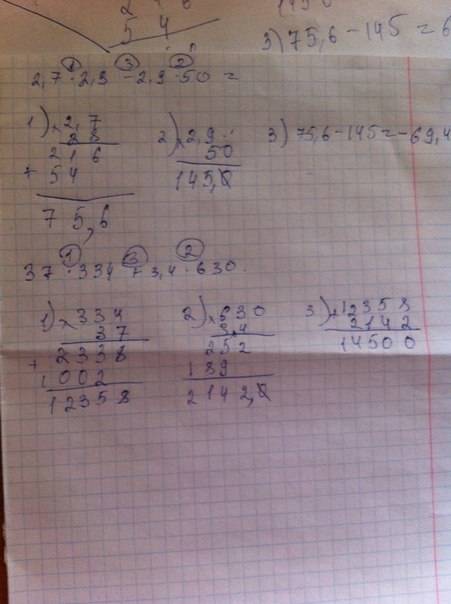 5 4
3) 75,6 - 145 = 6
① ③ ②
2,7 · 2,3 - 2,9 · 50 =
1) × 2,7
28
2 1 6
+ 5 4
7 5,6
2) × 2,9
50
145,0
3) 75,6 - 145 = -69,4
① ③ ②
37 · 334 + 3,4 · 630
1) × 334
37
+ 2338
1002
12358
2) × 630
3,4
252
189
2142,0
3) + 12358
2142
14500